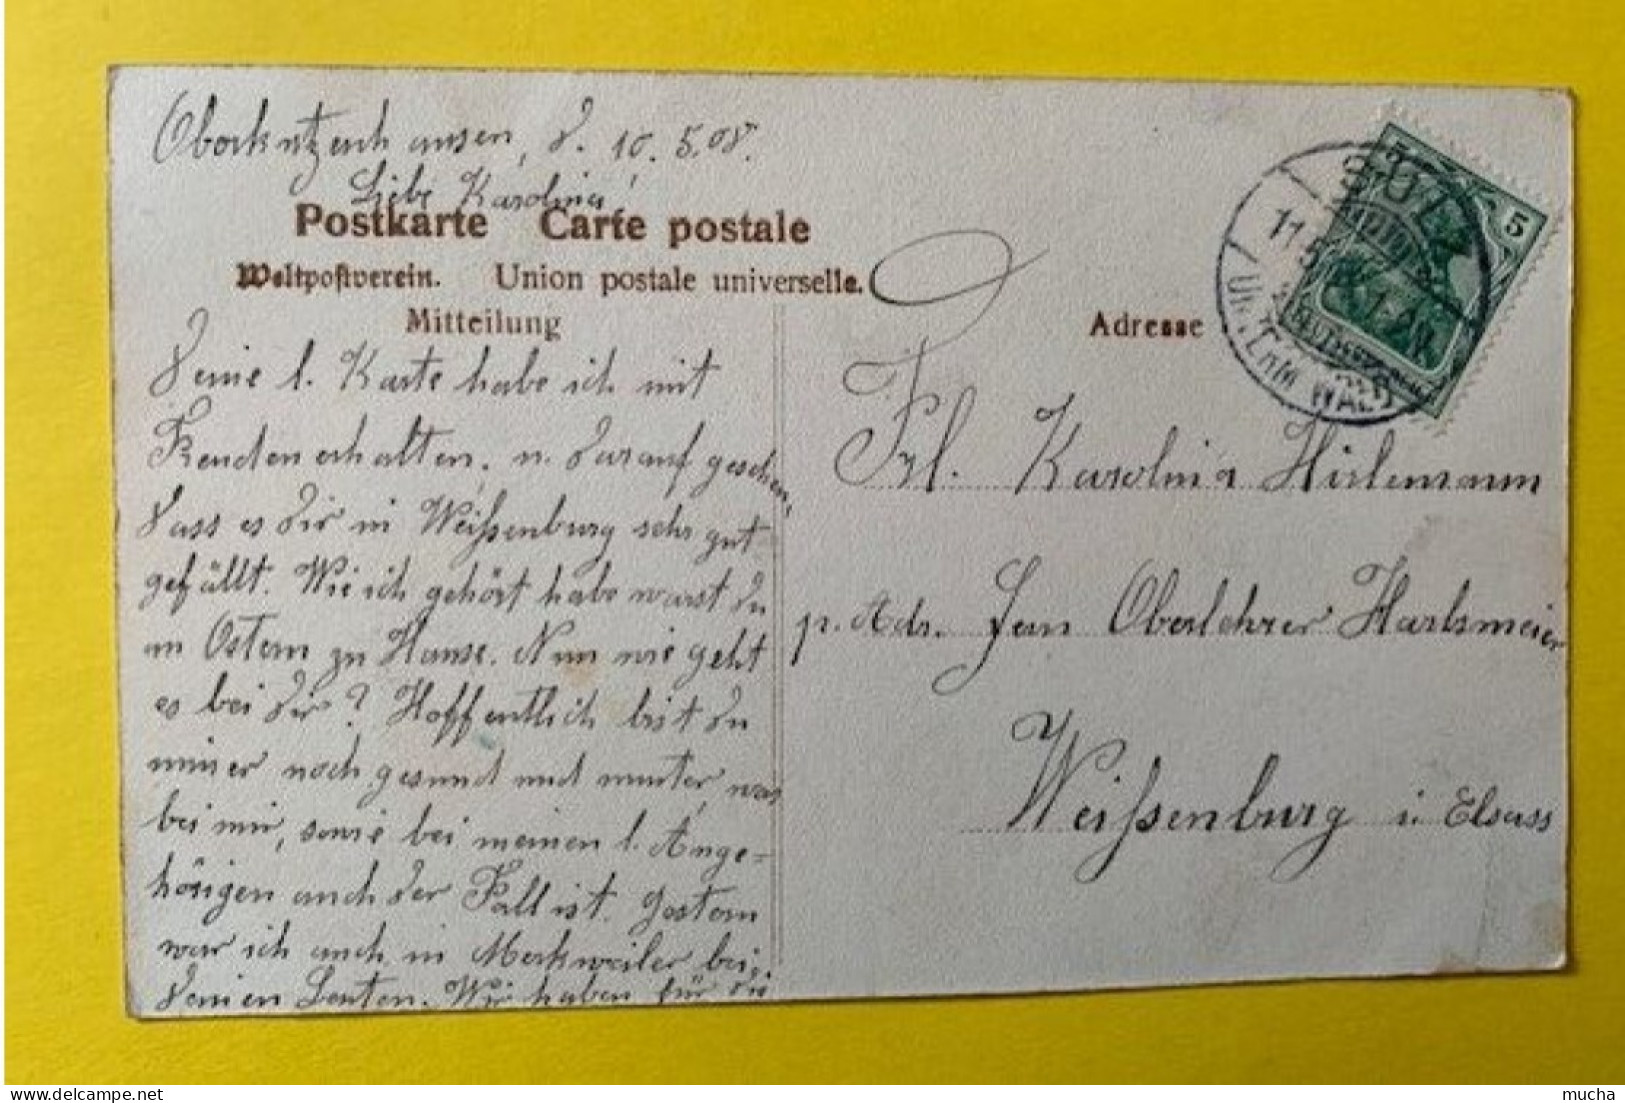 Oberkutzenhausen, d. 10. 5. 08.
Liebe Karolina!
Postkarte Carte postale
Weltpostverein. Union postale universelle.
Mitteilung
Adresse
Deine l. Karte habe ich mit
Freuden erhalten, u. darauf gesehen,
dass es dir in Weißenburg sehr gut
gefällt. Wie ich gehört habe warst du
an Ostern zu Hause. Nun wie geht
es bei dir? Hoffentlich bist du
immer noch gesund und munter, was
bei mir, sowie bei meinen l. Ange=
hörigen auch der Fall ist. Gestern
war ich auch in Merkweiler bei
deinen Leuten. Wir haben für die
Frl. Karolina Hirlemann
p. Adr. Oberlehrer Harlsmeier
Weißenburg i. Elsass
SULZ
11.5.
1-2N.
(UNT.ELS.) WALD
5
mucha